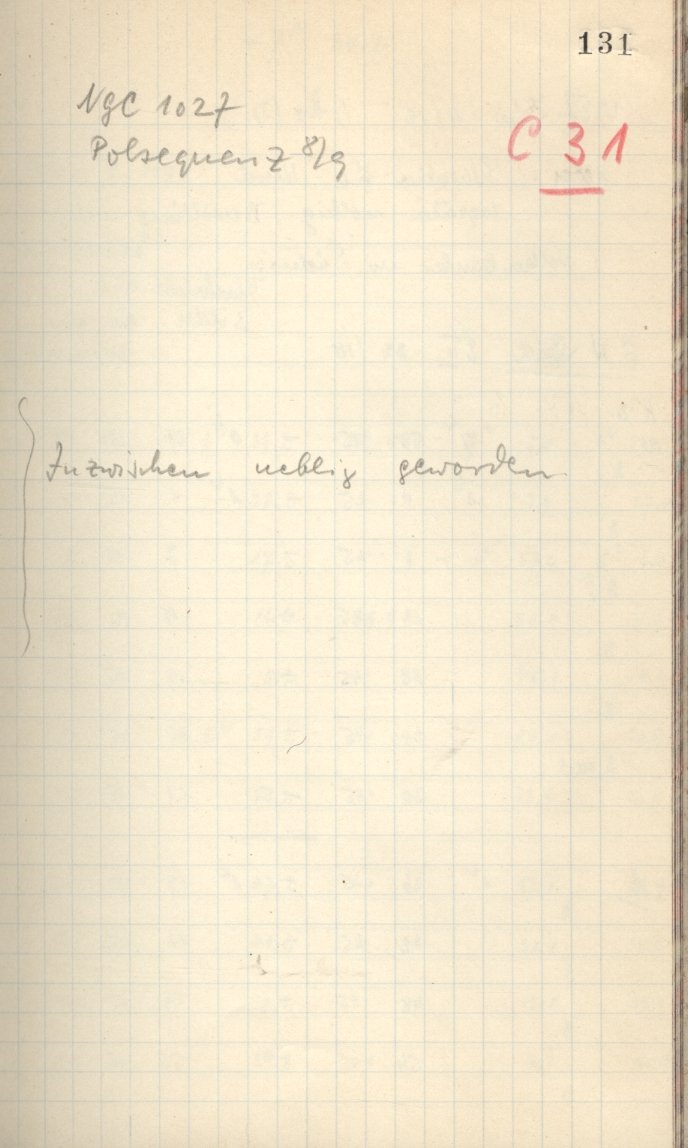 131
NGC 1027
Polsequenz 8/9
C 31
Inzwischen neblig geworden